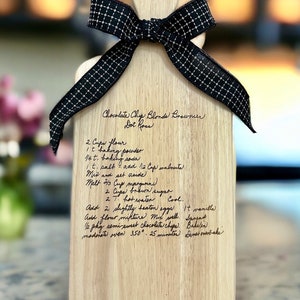 Chocolate Chip Blonde Brownies
Dot Rose
2 Cups flour
1 t. baking powder
1/4 t. baking soda
1 t. salt - add 1/2 Cup walnuts
Mix and set aside
Melt 2/3 Cup margarine
2 Cups brown sugar
2 T. hot water Cool
Add 2 slightly beaten eggs 1 t. vanilla
Add flour mixture Mix well Spread
1/2 pkg semi sweet chocolate chips Bake in
moderate oven 350° - 25 minutes